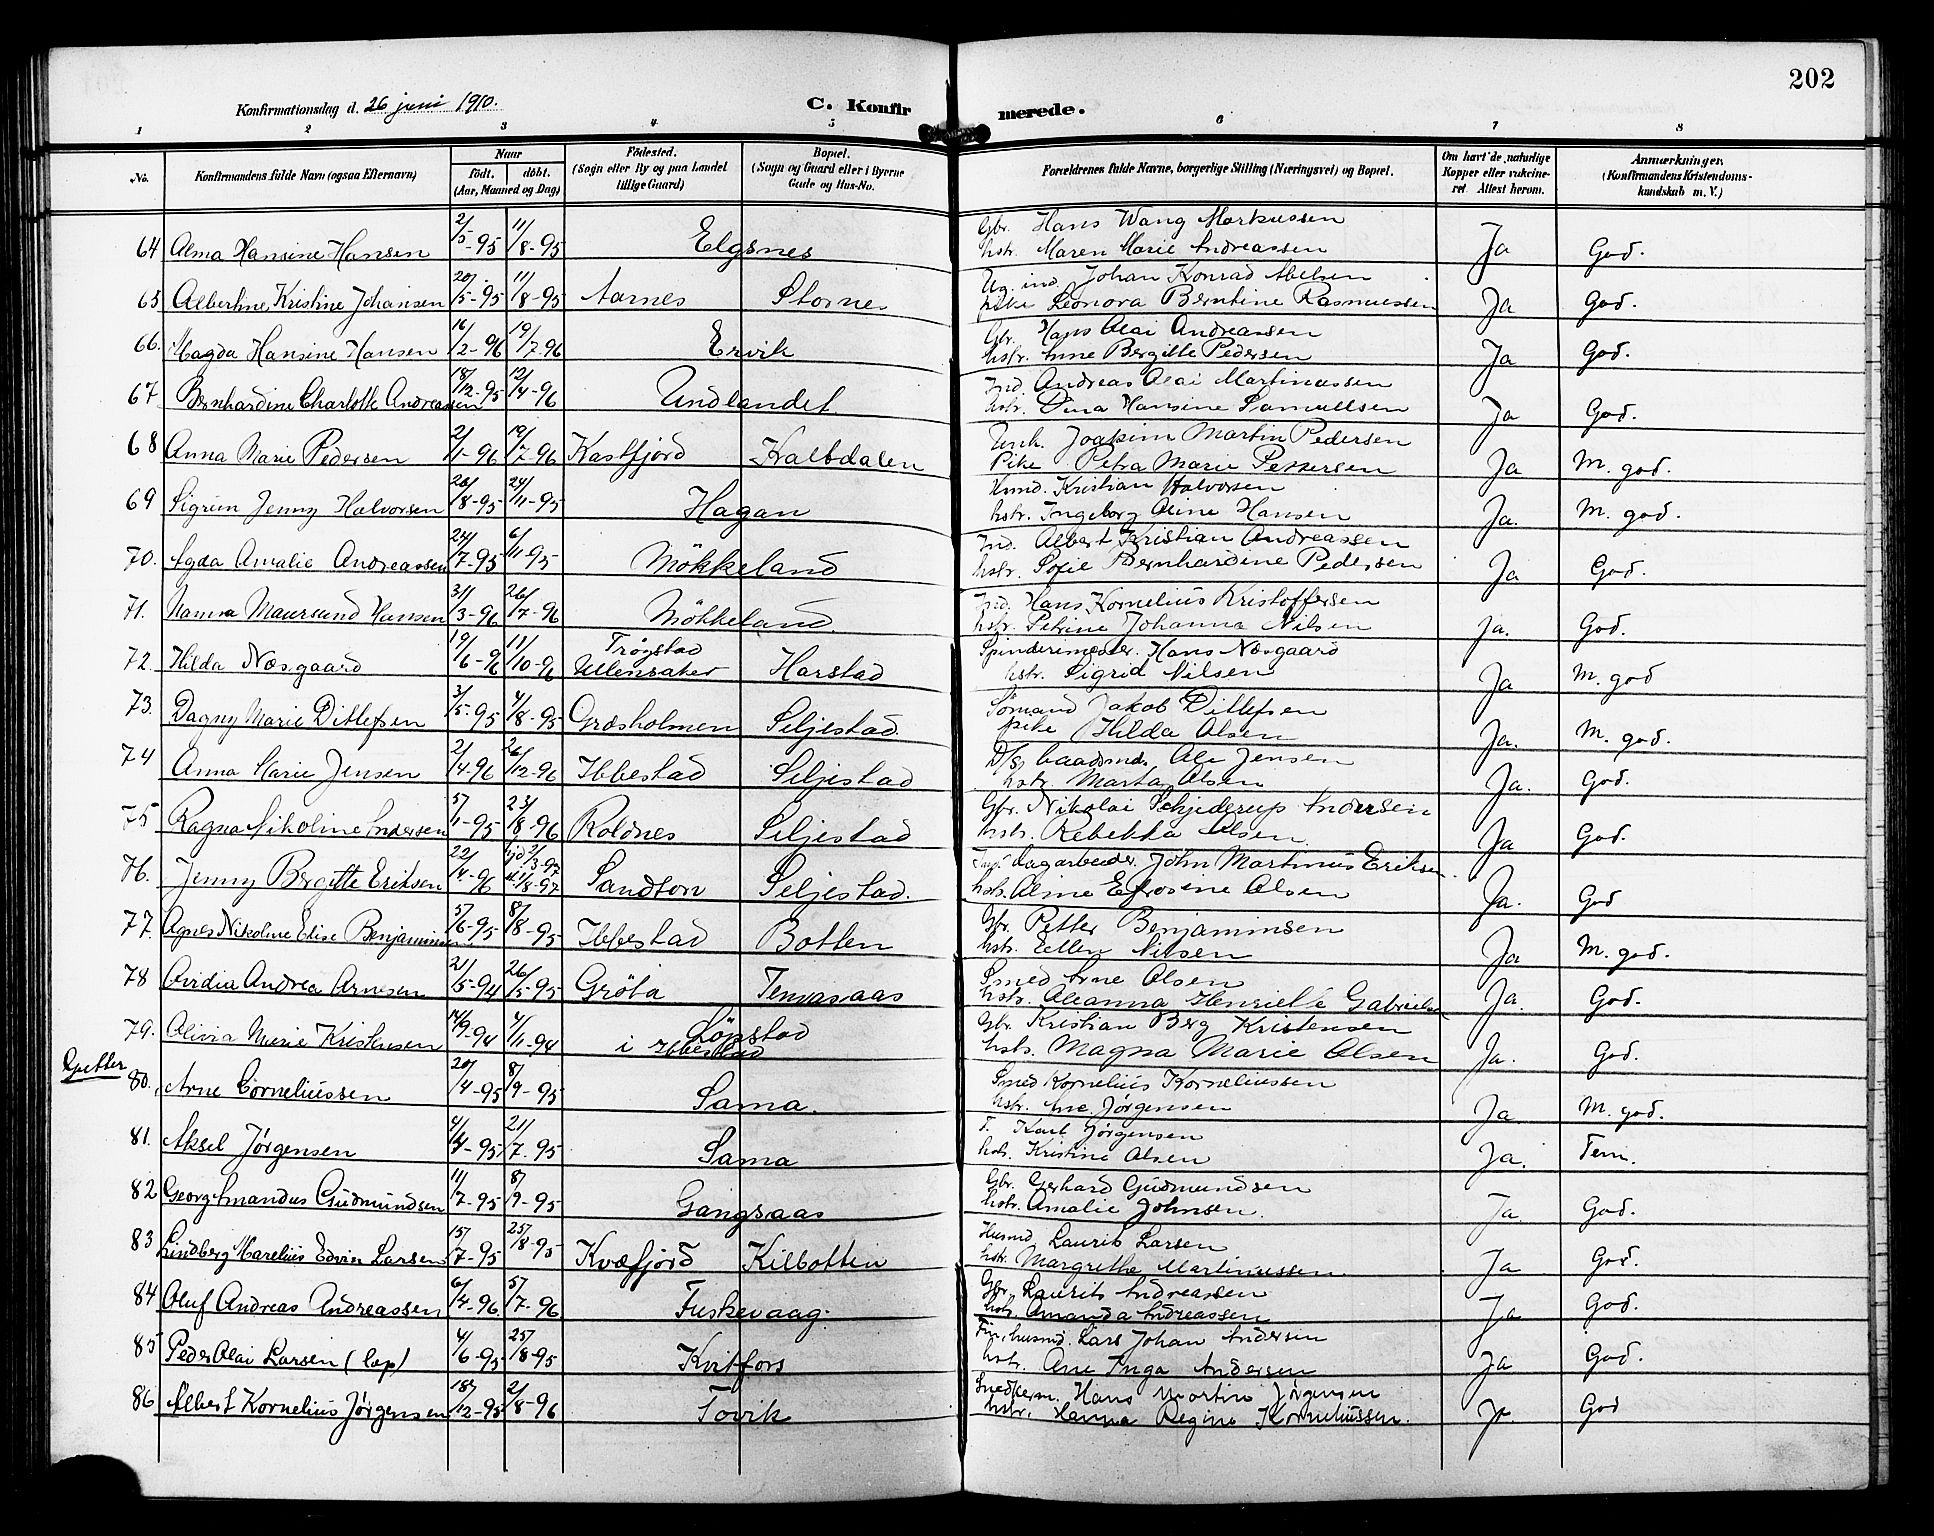 202
Konfirmationsdag d. 26 juni 1910.
C. Konfirmerede.
1 2 3 4 5 6 7 8
No. Konfirmandens fulde Navn (ogsaa Efternavn) Naar födt. döbt. (Aar, Maaned og Dag) Födested. (Sogn eller By og paa Landet tillige Gaard) Bopæl. (Sogn og Gaard eller i Byerne Gade og Hus-No. Forældrenes fulde Navne, borgerlige Stilling (Næringsvei) og Bopæl. Om havt de naturlige Kopper eller vakcineret. Attest herom. Anmærkninger. (Konfirmandens Kristendomskundskab m. V.)
64 Alma Hansine Hansen 2/5-95 11/8-95 Elgsnes Gbr. Hans Wang Markussen
hstr. Maren Marie Andreassen Ja God.
65 Albertine Kristine Johansen 20/5-95 11/8-95 Aarnes Stornes Ug. ind. Johan Konrad Abelsen
pike Leonora Berntine Rasmussen Ja God.
66. Magda Hansine Hansen 16/2-96 19/7-96 Ervik Gbr. Hans Olai Andreassen
hstr. Anne Bergitte Pedersen Ja God.
67 Bernhardine Charlotte Andreassen 18/12-95 12/4-96 Undlandet Ind. Andreas Olai Martinussen
hstr. Dina Hansine Samuelsen Ja God.
68 Anna Marie Pedersen 2/1-96 19/7-96 Kastfjord Kalbdalen Unk. Joakim Martin Pedersen
Pike Petra Marie Pettersen Ja M. god.
69 Sigrun Jenny Halvorsen 26/8-95 24/11-95 Hagan Husmd. Kristian Halvorsen
hstr. Ingeborg Oline Hansen Ja. M. god.
70. Agda Amalie Andreassen 24/7-95 6/11-95 Mökkeland Ind. Albert Kristian Andreassen
hstr. Sofie Bernhardine Pedersen Ja God.
71. Nanna Maursund Hansen 31/3-96 26/7-96 Mökkeland. Ind. Hans Kornelius Kristoffersen
hstr. Petrine Johanna Nilsen Ja. God.
72. Hilda Næsgaard 19/6-96 11/10-96 Trøgstad Ullensaker Harstad Spinderimester. Hans Næsgaard
hstr. Sigrid Nilsen Ja M. god
73. Dagny Marie Ditlefsen 3/5-95 4/8-95 Græsholmen Seljestad. Sömand Jakob Ditlefsen
pike Hilda Olsen Ja. M. god.
74 Anna Marie Jensen 2/4-96 26/12-96 Ibbestad Seljestad Ole Jensen
hstr. Marta Olsen Ja. God.
75 Ragna Nikoline Andersen 5/1-95 23/8-96 Roldnes Seljestad Gbr. Nikolai Schjederup Andersen
hstr. Rebekka Olsen. Ja God.
76. Jenny Bergitte Eriksen 22/4-96 hjd 2/3-97 11/8-97 Sandton Seljestad. dagarbeider. John Martinus Eriksen.
hstr. Aline Efrosine Olsen Ja. God
77. Agnes Nikoline Elise Benjaminsen 5/6-95 8/8-95 Ibbestad Botten Gbr. Petter Benjaminsen
hstr. Ellen Nilsen Ja M. god.
78 Ovidia Andrea Arnesen 21/5-94 26/5-95 Gröta Tennvasaas Smed Arne Olsen
hstr. Oleanna Henriette Gabrielsen Ja. God.
79. Olivia Marie Kristensen 14/9-94 4/11-94 Löpstad
i Ibbestad Gbr. Kristian Berg Kristensen
hstr. Magna Marie Olsen Ja. God.
Gutter
80. Arne Corneliussen 20/4-95 8/9-95 Sama. Smed Kornelius Korneliussen
hstr. Ane Jørgensen Ja. M. god.
81. Aksel Jørgensen 4/4-95 21/7-95 Sama F. Karl Jørgensen
hstr. Kristine Olsen Ja. Tem.
82 Georg Amandus Gudmundsen 11/7-95 8/9-95 Gangsaas Gbr. Gerhard Gudmundsen
hstr. Amalie Johnsen. Ja. God.
83 Lindberg Marelius Edvin Larsen 15/7-95 25/8-95 Kvæfjord Kilbotten Husmd Laurits Larsen
hstr. Margrethe Martinussen Ja God.
84 Oluf Andreas Andreassen 6/4-96 5/7-96 Fuskevaag. Gbr. Laurits Andreassen
hstr. Amanda Andreassen Ja God.
85 Peder Olai Larsen (lap) 4/6-95 25/8-95 Kvitfors Fin, husmd. Lars Johan Andersen
hstr. Ane Inga Andersen Ja God.
86 Albert Kornelius Jørgensen 18/12-95 2/8-96 Tovik Snedkerm. Hans Martin Jørgensen
hstr. Hanna Regine Korneliussen. Ja. God